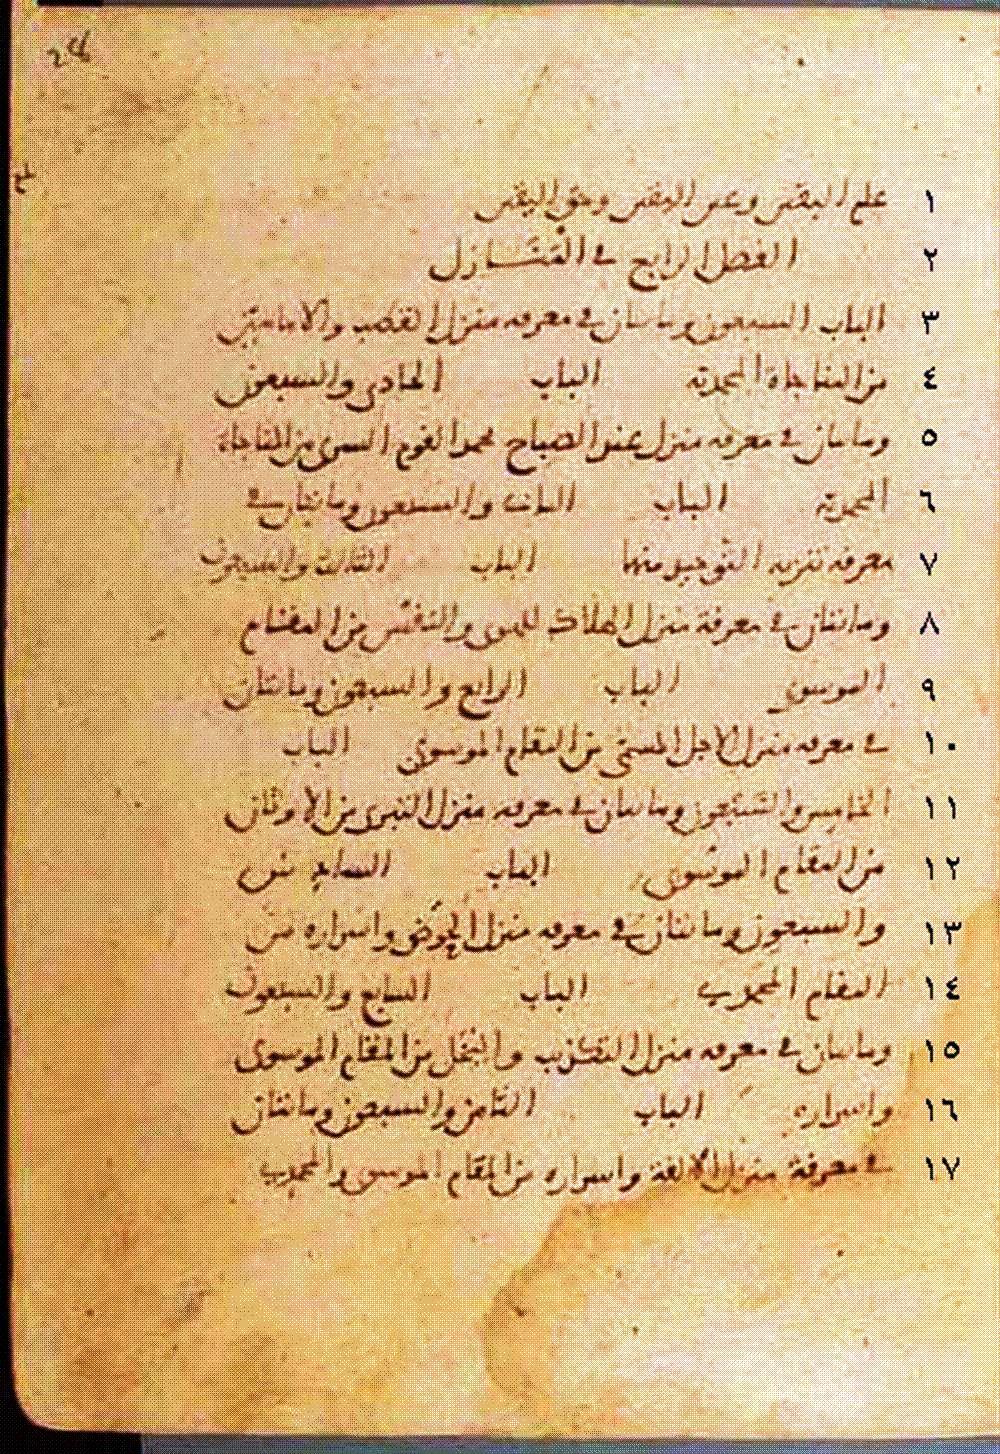 28
١ علم اليقين وعين اليقين وحق اليقين
٢ الفصل الرابع في المنازل
٣ الباب السبعون ومائتان في معرفة منزل القطب والامامين
٤ من المناجاة المحمدية الباب الحادي والسبعون
٥ ومائتان في معرفة منزل عند الصباح يحمد القوم السرى من المناجاة
٦ المحمدية الباب الثاني والسبعون ومائتان في
٧ معرفة تنزيه التوحيد منها الباب الثالث والسبعون
٨ ومائتان في معرفة منزل الهلاك للهوى والنفس من المقام
٩ الموسوي الباب الرابع والسبعون ومائتان
١٠ في معرفة منزل الاجل المسمى من المقام الموسوي الباب
١١ الخامس والسبعون ومائتان في معرفة منزل التبري من الاوثان
١٢ من المقام الموسوي الباب السادس
١٣ والسبعون ومائتان في معرفة منزل الحوض واسراره من
١٤ المقام المحمدي الباب السابع والسبعون
١٥ ومائتان في معرفة منزل التكذيب والبخل من المقام الموسوي
١٦ واسراره الباب الثامن والسبعون ومائتان
١٧ في معرفة منزل الالفة واسراره من المقام الموسوي والمحمدي